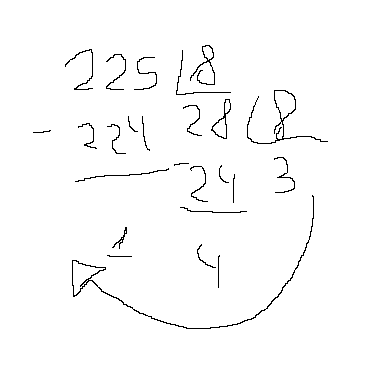 225 8
- 224 28 8
24 3
1 4